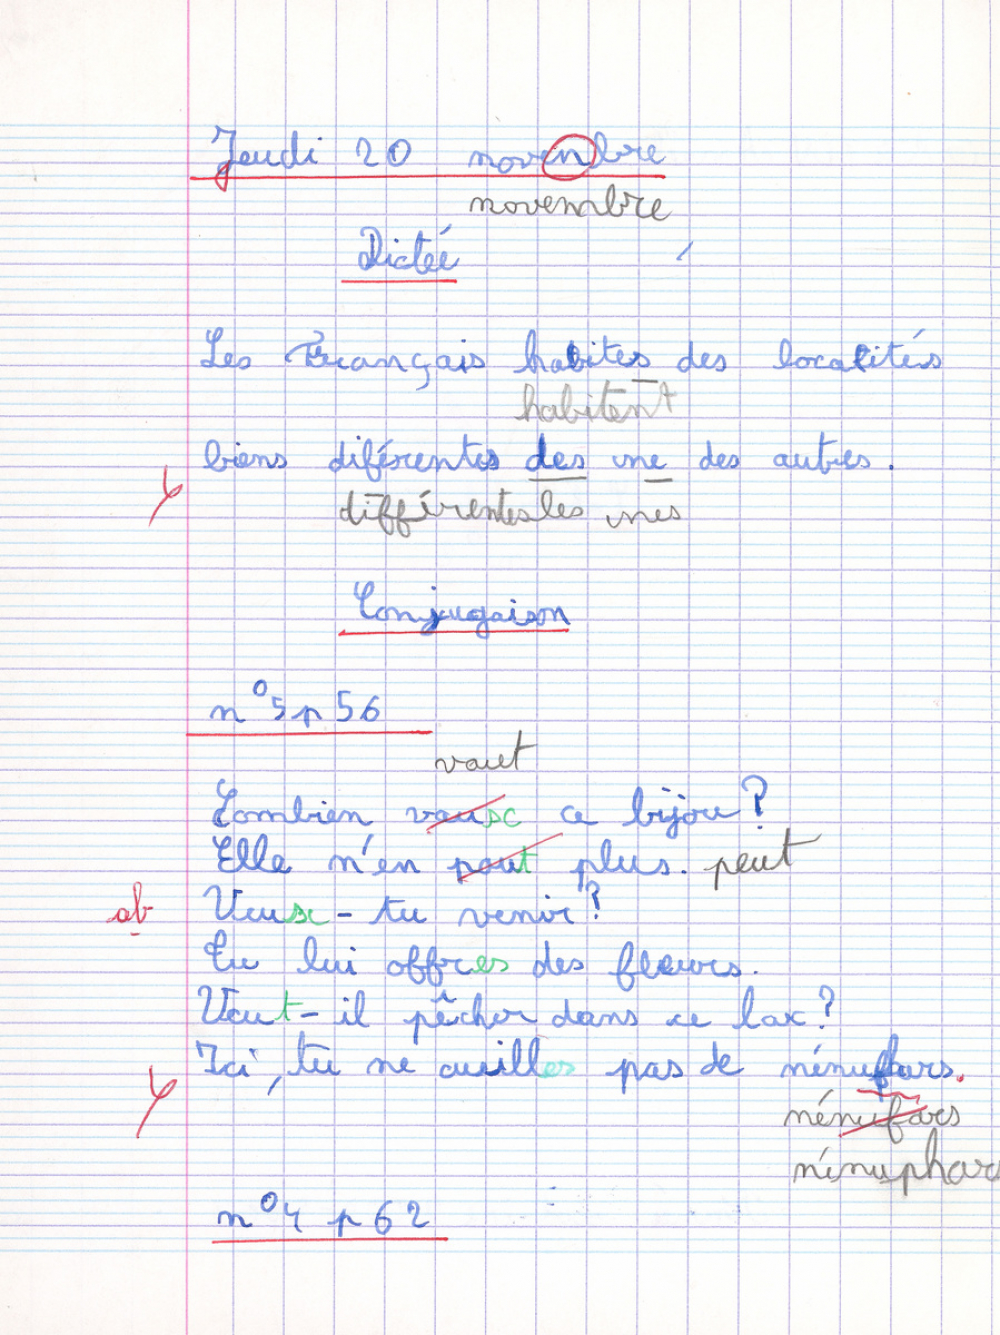 Jeudi 20 novenbre
novembre
Dictée
Les Français habites des localités
habitent
biens diférentes des une des autres.
différentes les unes
Conjugaison
n°5 p 56
vaut
Combien vausc ce bijou?
Elle n'en pout plus. peut
ab Veusc-tu venir?
Tu lui offres des fleurs.
Veut-il pêcher dans ce lac?
Ici, tu ne cuilles pas de nénufars.
nénufars
nénuphars
n°4 p 62